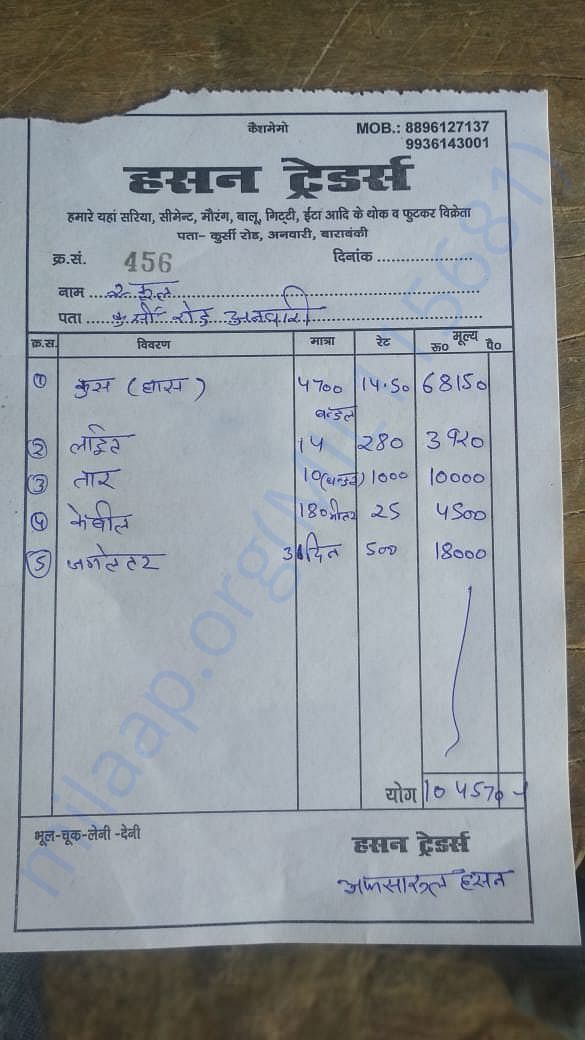 कैशमेमो MOB.: 8896127137
9936143001
हसन ट्रेडर्स
हमारे यहां सरिया, सीमेन्ट, मौरंग, बालू, गिट्टी, ईटा आदि के थोक व फुटकर विक्रेता
पता- कुर्सी रोड, अनवारी, बाराबंकी
क्र.सं. 456 दिनांक
नाम स्कूल
पता कुर्सी रोड अनवारी
क्र.स. विवरण मात्रा रेट मूल्य
रू० पै०
① कुस (घास) 4700 14.50 68150
बन्डल
② लाईट 14 280 3920
③ तार 10(बन्डल) 1000 10000
④ केबील 180मीटर 25 4500
⑤ जनेटर दिन 500 18000
योग 104570
भूल-चूक-लेनी -देनी
हसन ट्रेडर्स
हसन
milaap.org(MIL115681)